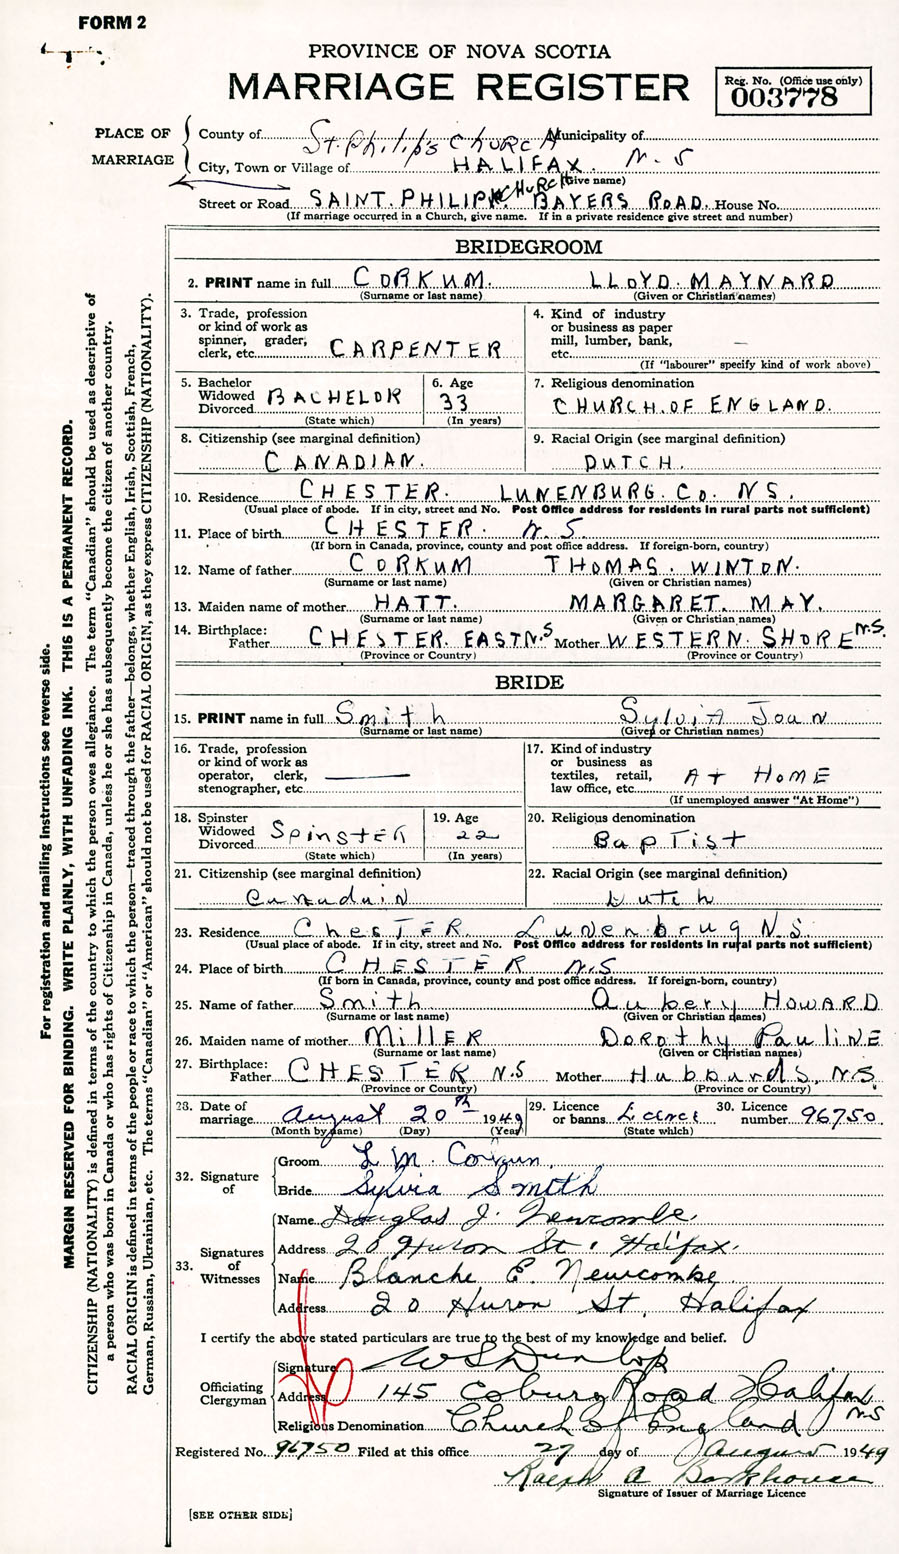 FORM 2
PROVINCE OF NOVA SCOTIA
MARRIAGE REGISTER
Reg. No. (Office use only)
003778
PLACE OF MARRIAGE
County of St. Philip's Church Municipality of
City, Town or Village of HALIFAX. N.S
(Give name)
Street or Road SAINT. PHILIP CHURCH BAYERS ROAD. House No.
(If marriage occurred in a Church, give name. If in a private residence give street and number)
BRIDEGROOM
2. PRINT name in full CORKUM. LLOYD. MAYNARD
(Surname or last name) (Given or Christian names)
3. Trade, profession
or kind of work as
spinner, grader,
clerk, etc. CARPENTER
4. Kind of industry
or business as paper
mill, lumber, bank,
etc. —
(If "labourer" specify kind of work above)
5. Bachelor
Widowed
Divorced BACHELOR
(State which)
6. Age
33
(In years)
7. Religious denomination
CHURCH. OF ENGLAND.
8. Citizenship (see marginal definition)
CANADIAN.
9. Racial Origin (see marginal definition)
DUTCH.
10. Residence CHESTER. LUNENBURG. Co. N.S.
(Usual place of abode. If in city, street and No. Post Office address for residents in rural parts not sufficient)
11. Place of birth CHESTER. N.S.
(If born in Canada, province, county and post office address. If foreign-born, country)
12. Name of father CORKUM THOMAS. WINTON.
(Surname or last name) (Given or Christian names)
13. Maiden name of mother HATT. MARGARET. MAY.
(Surname or last name) (Given or Christian names)
14. Birthplace:
Father CHESTER. EAST N.S Mother WESTERN. SHORE N.S.
(Province or Country) (Province or Country)
BRIDE
15. PRINT name in full Smith Sylvia Joan
(Surname or last name) (Given or Christian names)
16. Trade, profession
or kind of work as
operator, clerk,
stenographer, etc. —
17. Kind of industry
or business as
textiles, retail,
law office, etc. At HOME
(If unemployed answer "At Home")
18. Spinster
Widowed
Divorced SPINSTER
(State which)
19. Age
22
(In years)
20. Religious denomination
Baptist
21. Citizenship (see marginal definition)
Canadain
22. Racial Origin (see marginal definition)
Dutch
23. Residence CHESTER Lunenbrug N.S.
(Usual place of abode. If in city, street and No. Post Office address for residents in rural parts not sufficient)
24. Place of birth CHESTER N.S
(If born in Canada, province, county and post office address. If foreign-born, country)
25. Name of father Smith Aubery HOWARD
(Surname or last name) (Given or Christian names)
26. Maiden name of mother MILLER Dorothy PauliNE
(Surname or last name) (Given or Christian names)
27. Birthplace:
Father CHESTER N.S Mother Hubbards, N.S.
(Province or Country) (Province or Country)
28. Date of
marriage August 20th 1949
(Month by name) (Day) (Year)
29. Licence
or banns Licence
(State which)
30. Licence
number 96750
32. Signature of
Groom L. M. Corkum
Bride Sylvia Smith
33. Signatures of Witnesses
Name Douglas J. Newcombe.
Address 20 Huron St. Halifax.
Name Blanche E. Newcombe
Address 20 Huron St, Halifax
I certify the above stated particulars are true to the best of my knowledge and belief.
Officiating Clergyman
Signature W S Dunlop
Address 145 Coburg Road Halifax N.S
Religious Denomination Church of England
Registered No. 96750 Filed at this office 27 day of August 1949
Ralph A Barkhouse
Signature of Issuer of Marriage Licence
[SEE OTHER SIDE]
For registration and mailing instructions see reverse side.
MARGIN RESERVED FOR BINDING. WRITE PLAINLY, WITH UNFADING INK. THIS IS A PERMANENT RECORD.
CITIZENSHIP (NATIONALITY) is defined in terms of the country to which the person owes allegiance. The term "Canadian" should be used as descriptive of
a person who was born in Canada or who has rights of Citizenship in Canada, unless he or she has subsequently become the citizen of another country.
RACIAL ORIGIN is defined in terms of the people or race to which the person—traced through the father—belongs, whether English, Irish, Scottish, French,
German, Russian, Ukrainian, etc. The terms "Canadian" or "American" should not be used for RACIAL ORIGIN, as they express CITIZENSHIP (NATIONALITY).